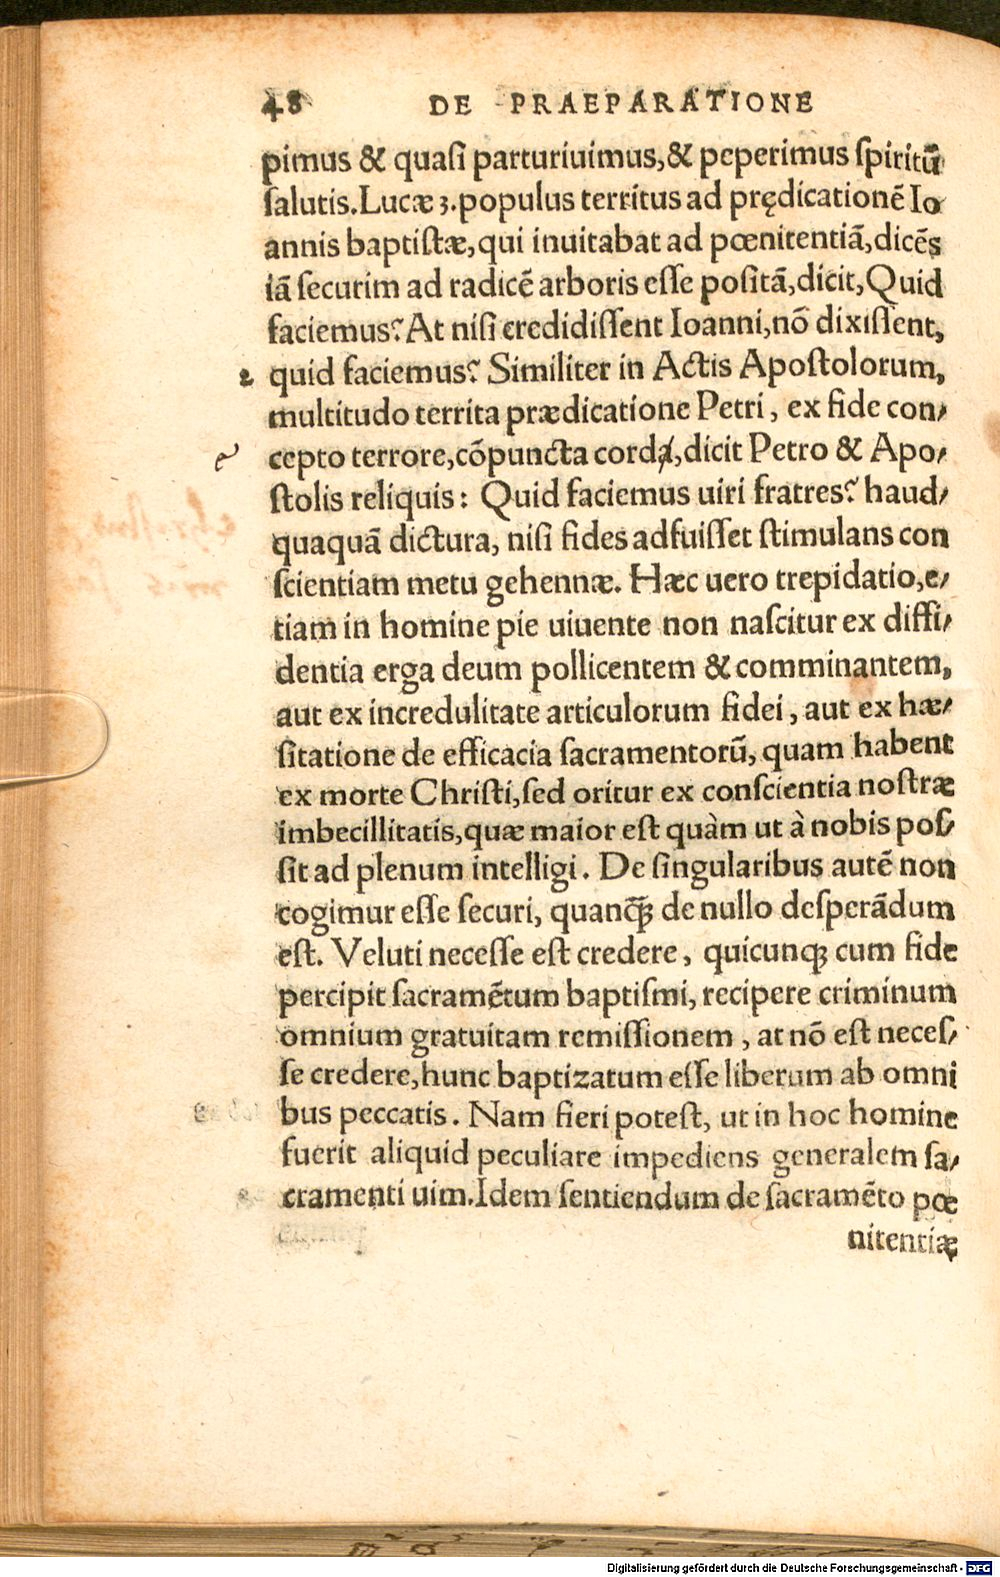 48 DE PRAEPARATIONE
pimus & quasi parturiuimus,& peperimus spiritũ
salutis.Lucæ 3.populus territus ad prędicationẽ Io
annis baptistæ,qui inuitabat ad pœnitentiã,dicẽs
iã securim ad radicẽ arboris esse positã,dicit,Quid
faciemus? At nisi credidissent Ioanni,nõ dixissent,
2 quid faciemus? Similiter in Actis Apostolorum,
multitudo territa prædicatione Petri, ex fide con-
cepto terrore,cõpuncta corda,dicit Petro & Apo-
stolis reliquis: Quid faciemus uiri fratres? haud-
quaquã dictura, nisi fides adfuisset stimulans con
scientiam metu gehennæ. Hæc uero trepidatio,e-
tiam in homine pie uiuente non nascitur ex diffi-
dentia erga deum pollicentem & comminantem,
aut ex incredulitate articulorum fidei, aut ex hæ-
sitatione de efficacia sacramentorũ, quam habent
ex morte Christi,sed oritur ex conscientia nostræ
imbecillitatis,quæ maior est quàm ut à nobis pos-
sit ad plenum intelligi. De singularibus autẽ non
cogimur esse securi, quanꝙ̃ de nullo desperãdum
est. Veluti necesse est credere, quicunqꝫ cum fide
percipit sacramẽtum baptismi, recipere criminum
omnium gratuitam remissionem, at nõ est neces-
se credere,hunc baptizatum esse liberum ab omni
bus peccatis. Nam fieri potest, ut in hoc homine
fuerit aliquid peculiare impediens generalem sa-
cramenti uim.Idem sentiendum de sacramẽto pœ
nitentiæ
Digitalisierung gefördert durch die Deutsche Forschungsgemeinschaft - DFG